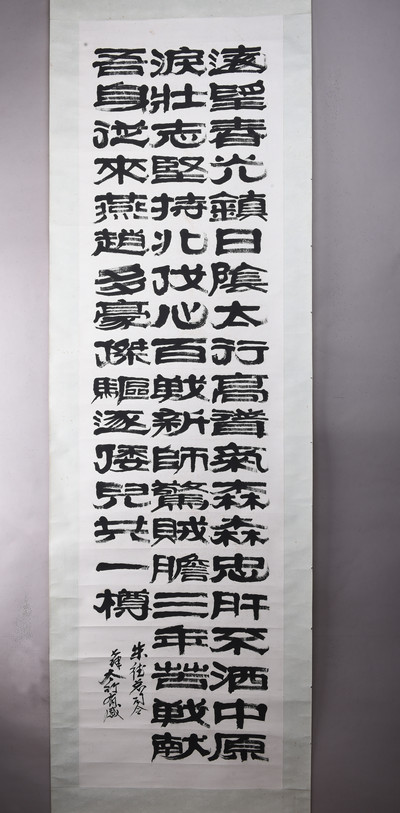 遠望春光鎮日陰太行高聳氣森森忠肝不洒中原
淚壯志堅持北伐心百戰新師驚賊膽三年苦戰献
吾身從來燕趙多豪傑驅逐倭兒共一樽
朱德总司令
太行春感